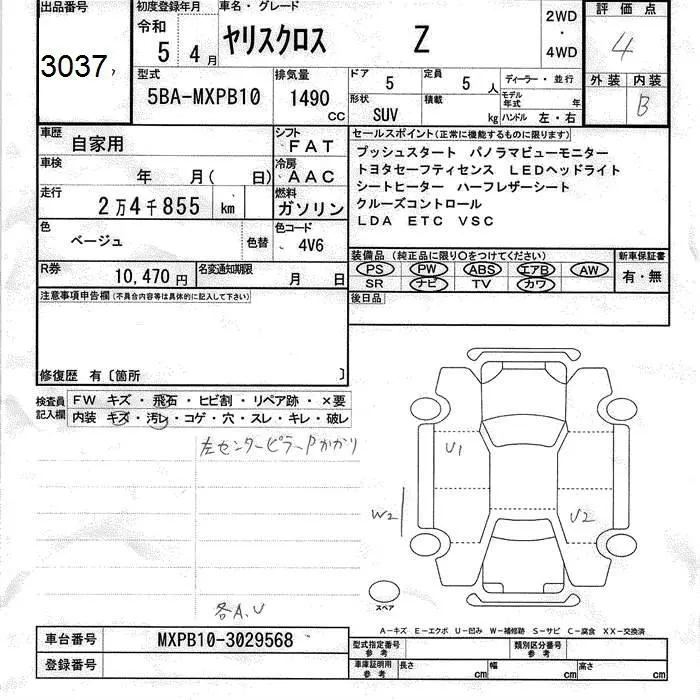 出品番号
3037
初度登録年月
令和
5 4月
車名・グレード
ヤリスクロス Z
2WD
・
4WD
評価点
4
型式
5BA-MXPB10
排気量
1490
CC
ドア 5
定員 5 人
ディーラー・並行
モデル年式 年
外装 内装
B
形状 SUV
積載 kg
ハンドル 左・右
車歴 自家用
シフト FAT
車検 年 月( 日)
冷房 AAC
走行 2万4千855 km
燃料 ガソリン
色 ベージュ 色替
色コード 4V6
R券 10,470円
名変通知期限 月 日
セールスポイント(正常に機能するものに限ります)
プッシュスタート パノラマビューモニター
トヨタセーフティセンス LEDヘッドライト
シートヒーター ハーフレザーシート
クルーズコントロール
LDA ETC VSC
装備品 (純正品に限り○をつけてください)
新車保証書
PS PW ABS エアB AW
SR ナビ TV カワ
有・無
後日品
注意事項申告欄(不具合内容等は具体的に記入して下さい)
修復歴 有〔箇所 〕
検査員記入欄
FW キズ・飛石・ヒビ割・リペア跡・×要
内装 キズ・汚レ・コゲ・穴・スレ・キレ・破レ
左センターピラーPかかり
各A.U
U1
W2
U2
スペア
A-キズ E-エクボ U-凹み W-補修跡 S-サビ C-腐食 XX-交換済
車台番号 MXPB10-3029568
登録番号
型式指定番号 参考
類別区分番号 参考
車庫証明用 参考
長さ cm
幅 cm
高さ cm